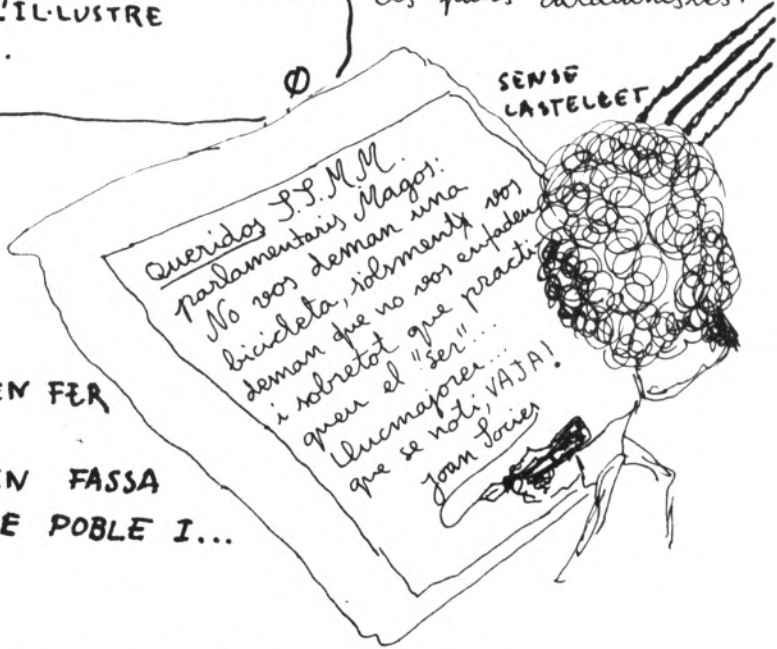 'IL·LUSTRE
.
SENSE
CASTELLET
Queridos S.S.M.M.
parlamentaris Magos:
No vos deman una
bicicleta, solsment vos
deman que no vos enfadeu
i sobretot que practi-
queu el "ser"...
Llucmajorer...
que se noti, VAJA!
Joan Socies
EN FER
EN FASSA
E POBLE I...